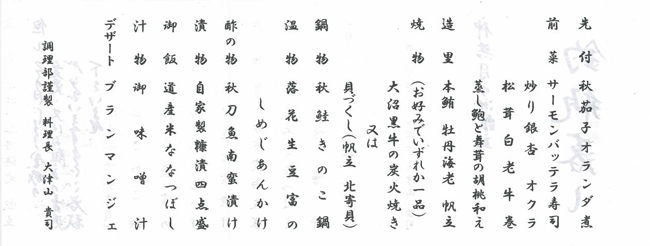 先付 秋茄子オランダ煮
前菜 サーモンバッテラ寿司
炒り銀杏 オクラ
松茸白老牛巻
蒸し鮑と舞茸の胡桃和え
造里 本鮪 牡丹海老 帆立
焼物 (お好みでいずれか一品)
大沼黒牛の炭火焼き
又は
貝づくし(帆立 北寄貝)
鍋物 秋鮭きのこ鍋
温物 落花生豆富の
しめじあんかけ
酢の物 秋刀魚南蛮漬け
漬物 自家製糠漬四点盛
御飯 道産米ななつぼし
汁物 御味噌汁
デザート ブランマンジェ
調理部謹製 料理長 大津山 貴司